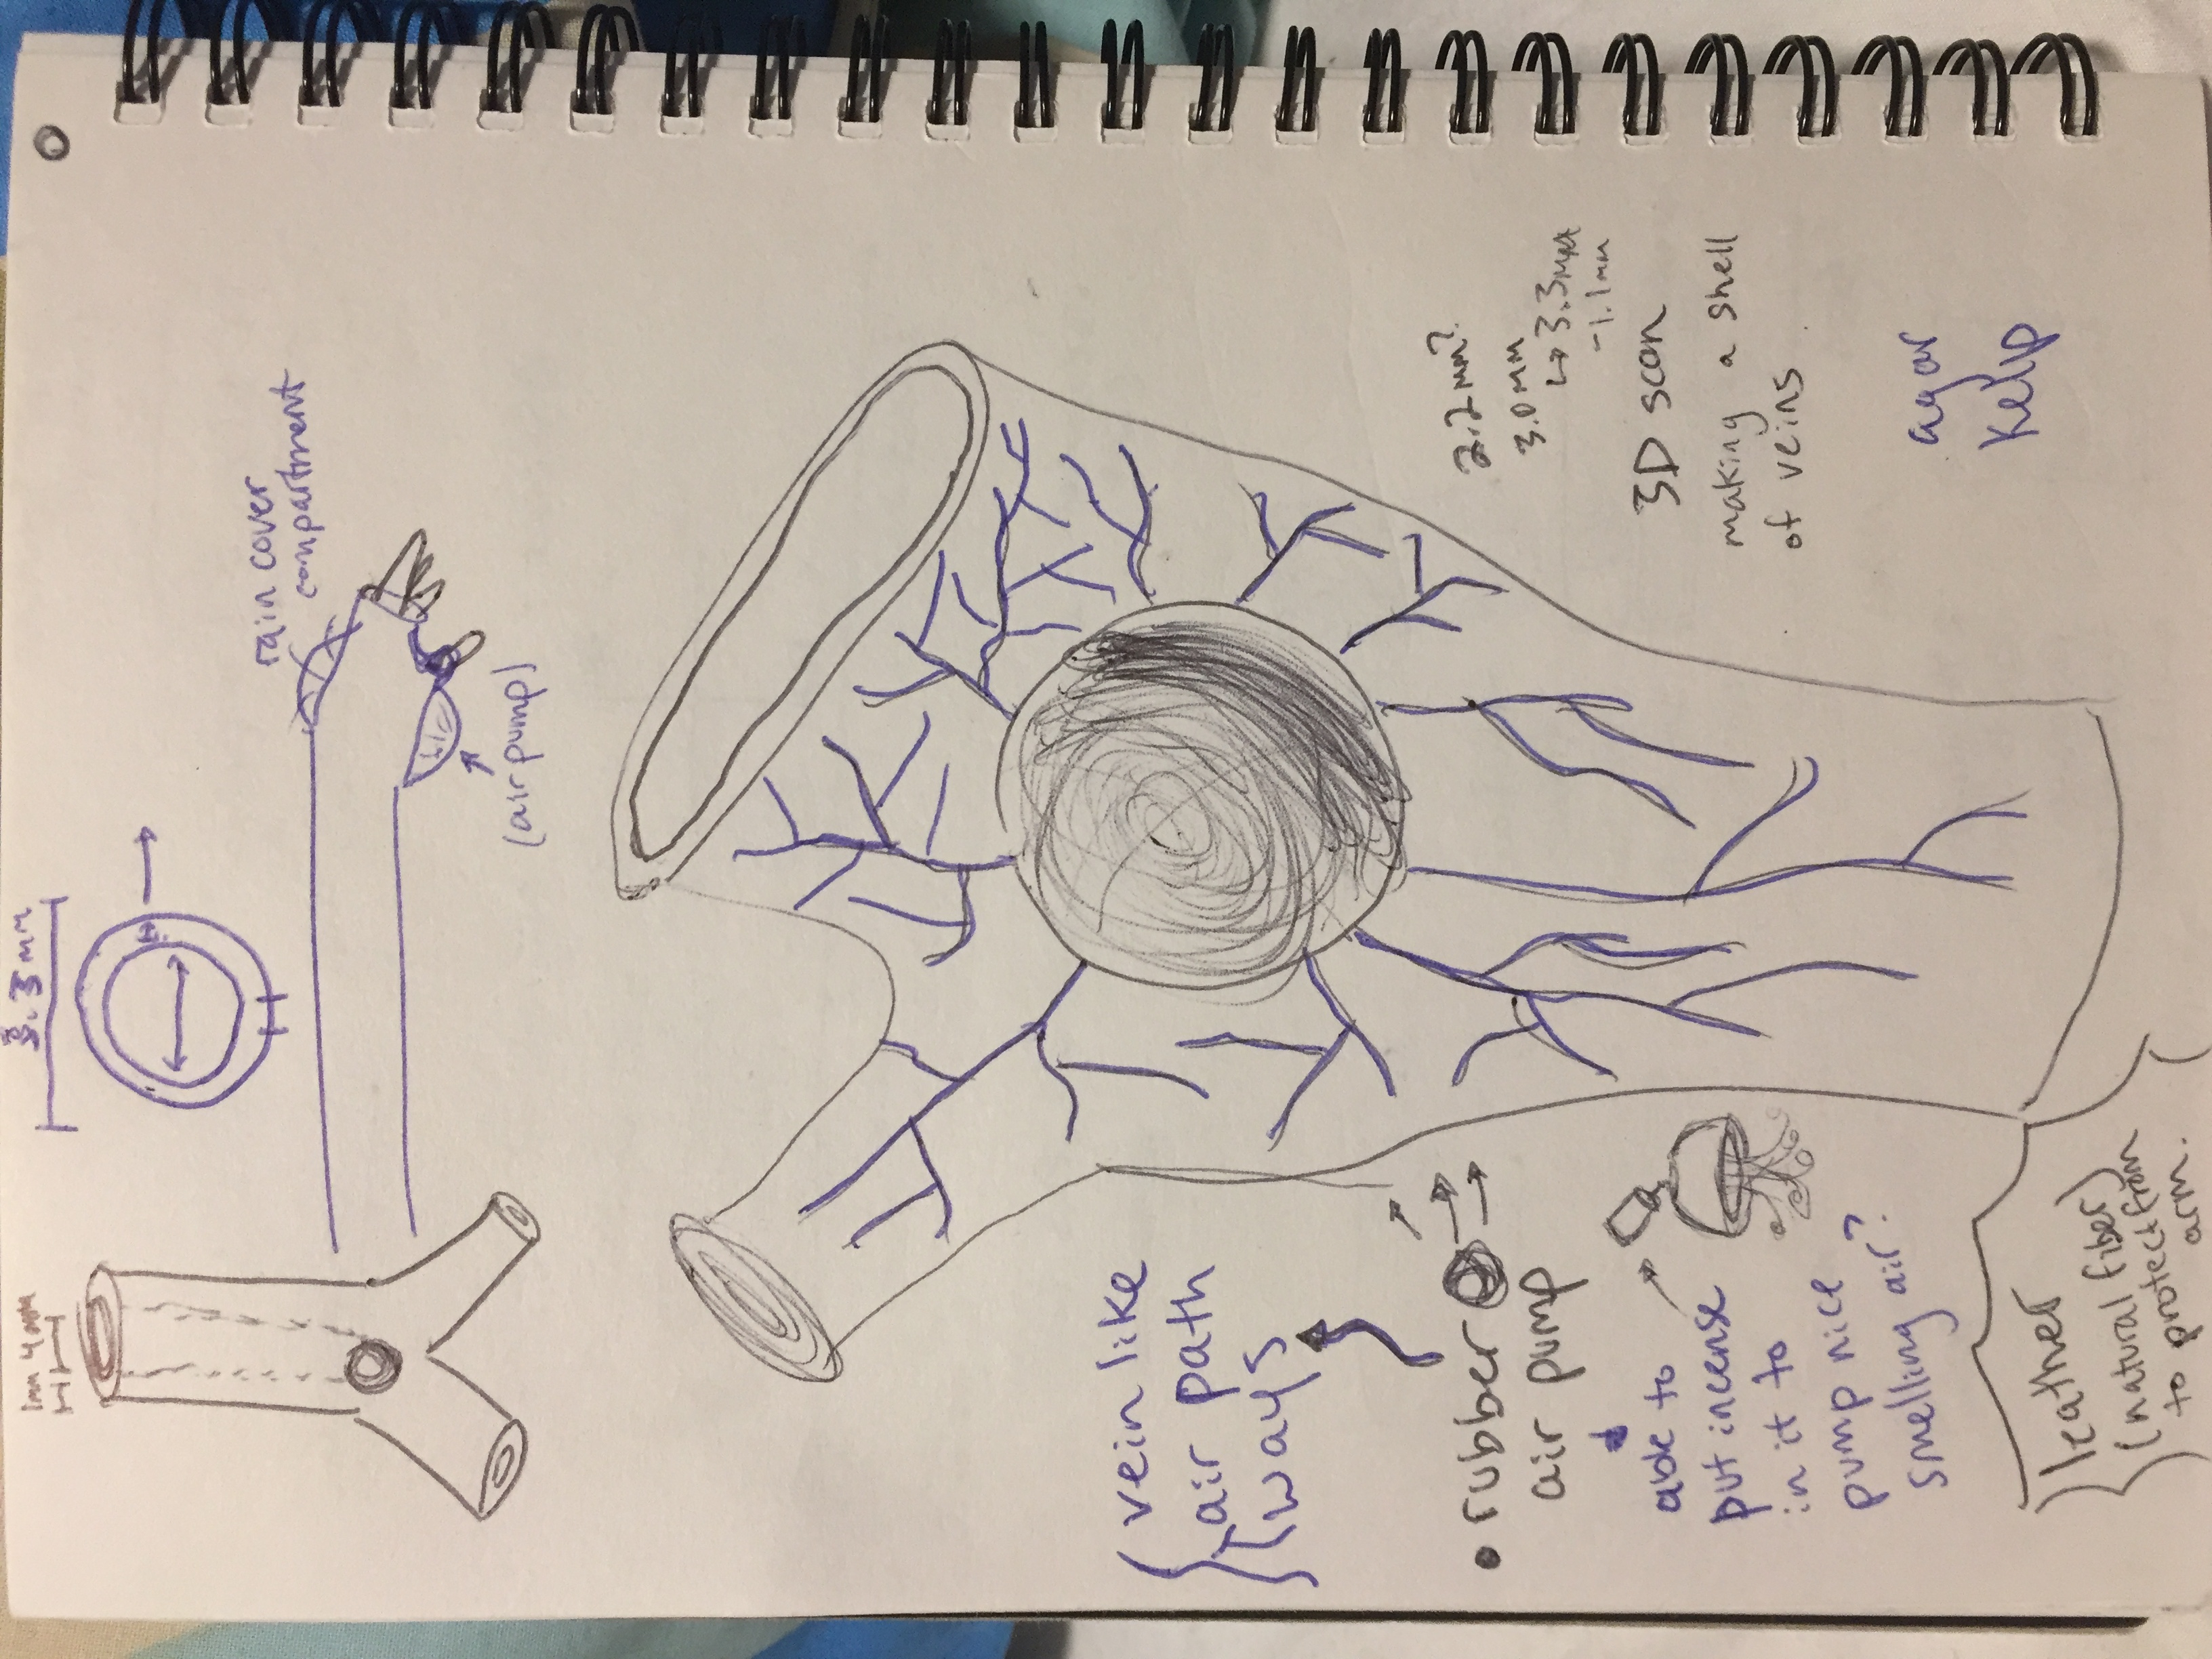 1mm 4mm
3.3mm
rain cover
compartment
(air pump)
vein like
air path
ways
• rubber
air pump
able to
put incense
in it to
pump nice
smelling air?
leather
(natural fiber)
to protect from
arm.
2.2mm?
3.0mm
↳ 3.3mm
-1.1mm
3D scan
making a shell
of veins.
agar
kelp